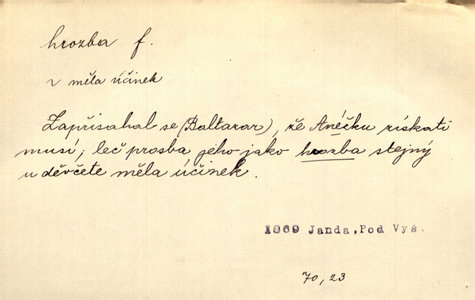 hrozba f.
v měla účinek
Zapřisahal se (Baltazar), že Anéčku získati
musí; leč prosba jeho jako hrozba stejný
u děvčete měla účinek.
1869 Janda, Pod Vyš.
70, 23